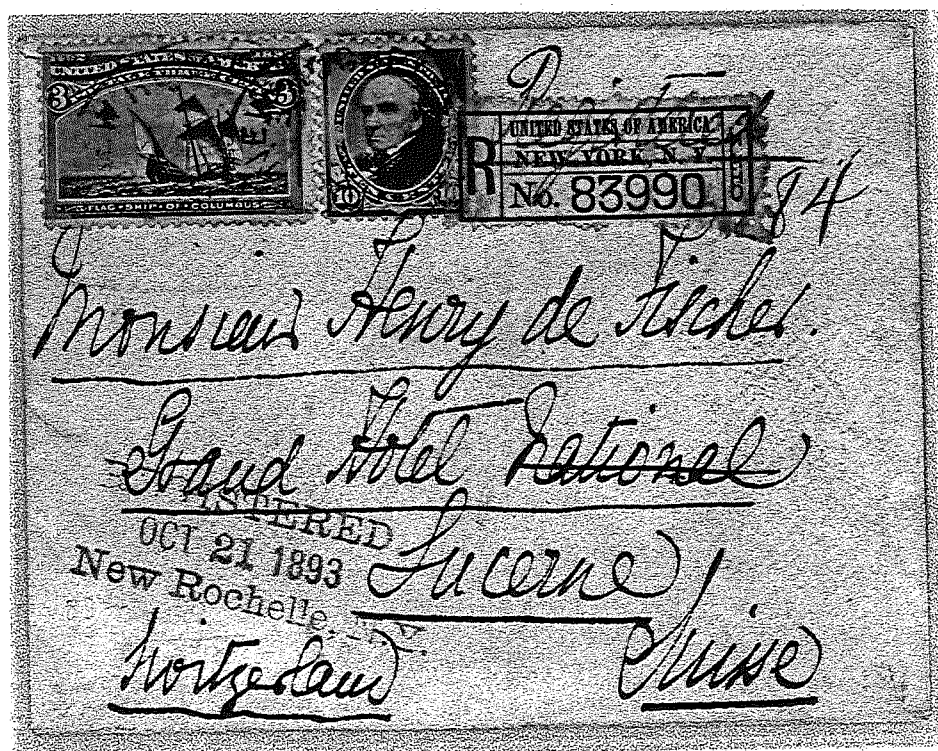 UNITED STATES OF AMERICA
3 3
FLAG SHIP OF COLUMBUS.
10
R
UNITED STATES OF AMERICA.
NEW YORK, N. Y.
No. 83990
84
Monsieur Henry de Fischer.
Grand Hotel National
ISTERED
OCT 21 1893
New Rochelle, N.Y.
Lucerne
Switzerland
Suisse